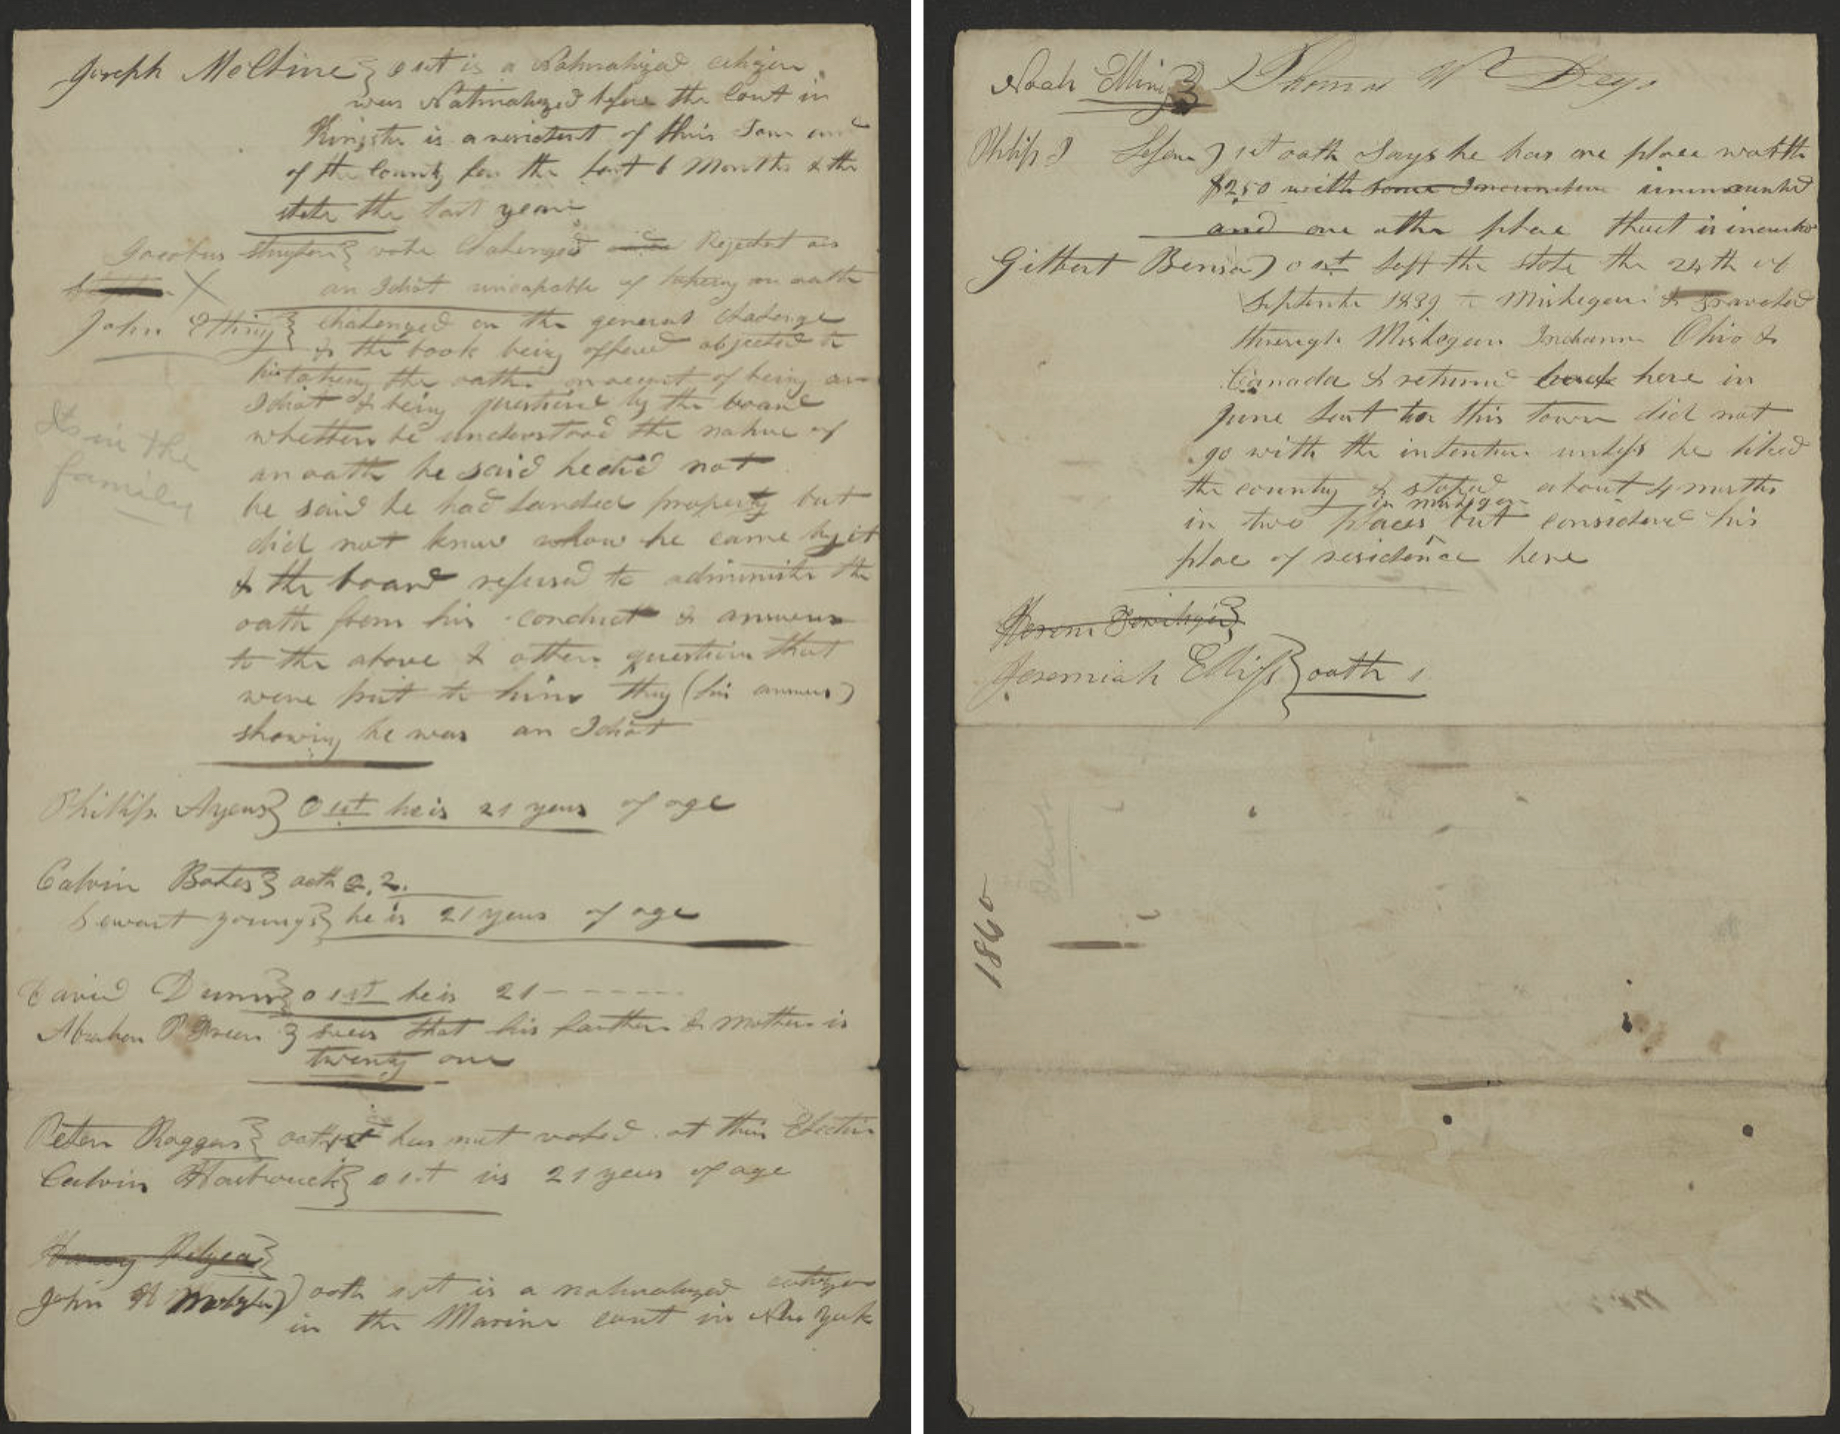 Joseph McClime } o 1st is a Natmalized citizen
was Natmalized before the Cout in
Kingston is a resident of this Town and
of the County for the last 6 Months & the
state the last year
Jacobus } vote Chalenged Rejected as
an Idiot uncapable of takeing an oath
John Etting } chalenged on the general Chalenge
& the book being offered objected to
his taking the oath on account of being an
Idiot & being questiond by the board
whether he understood the nature of
an oath he said he did not
Its in the
family
he said he had landed property but
did not know whow he came by it
& the board refused to administer the
oath from his conduct & answers
to the above & other question that
were put to him they (his answers)
showing he was an Idiot
Phillip Ayers } O 1st he is 21 years of age
Calvin Bates } oath 2.
Sewart youngs } he is 21 years of age
David Dunn } o 1st he is 21 ------
Abraham P Green } swears that his farther & mother is
twenty one
Peter Roggers } oath 1st has not voted at this Election
Calvin Hasbrouck } o 1st is 21 years of age
Harvey Relyea }
John H ) oath 1st is a natmalized citizen
in the Marine court in New York
Noah Etting } Thomas W Deyo
Philip I ) 1st oath Says he has one place worth
$250 with some
and one other place that is
Gilbert Benson ) o 1st left the state the 24th of
September 1839 to Mishegan & traveled
through Mishegan Indiana Ohio &
Canada & returnd back here in
June last to this town did not
go with the intention unless he liked
the country & stoped about 4 months
in mishigan
in two places but considerd his
place of residence here
Jeremiah Elliss } oath 1
1840